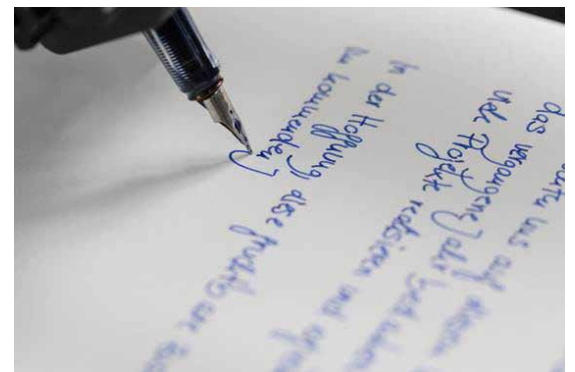 uns auf diesem
das vergangene Jahr bedanken
viele Projekte realisieren und
In der Hoffnung, diese fruchtbare
im kommenden J